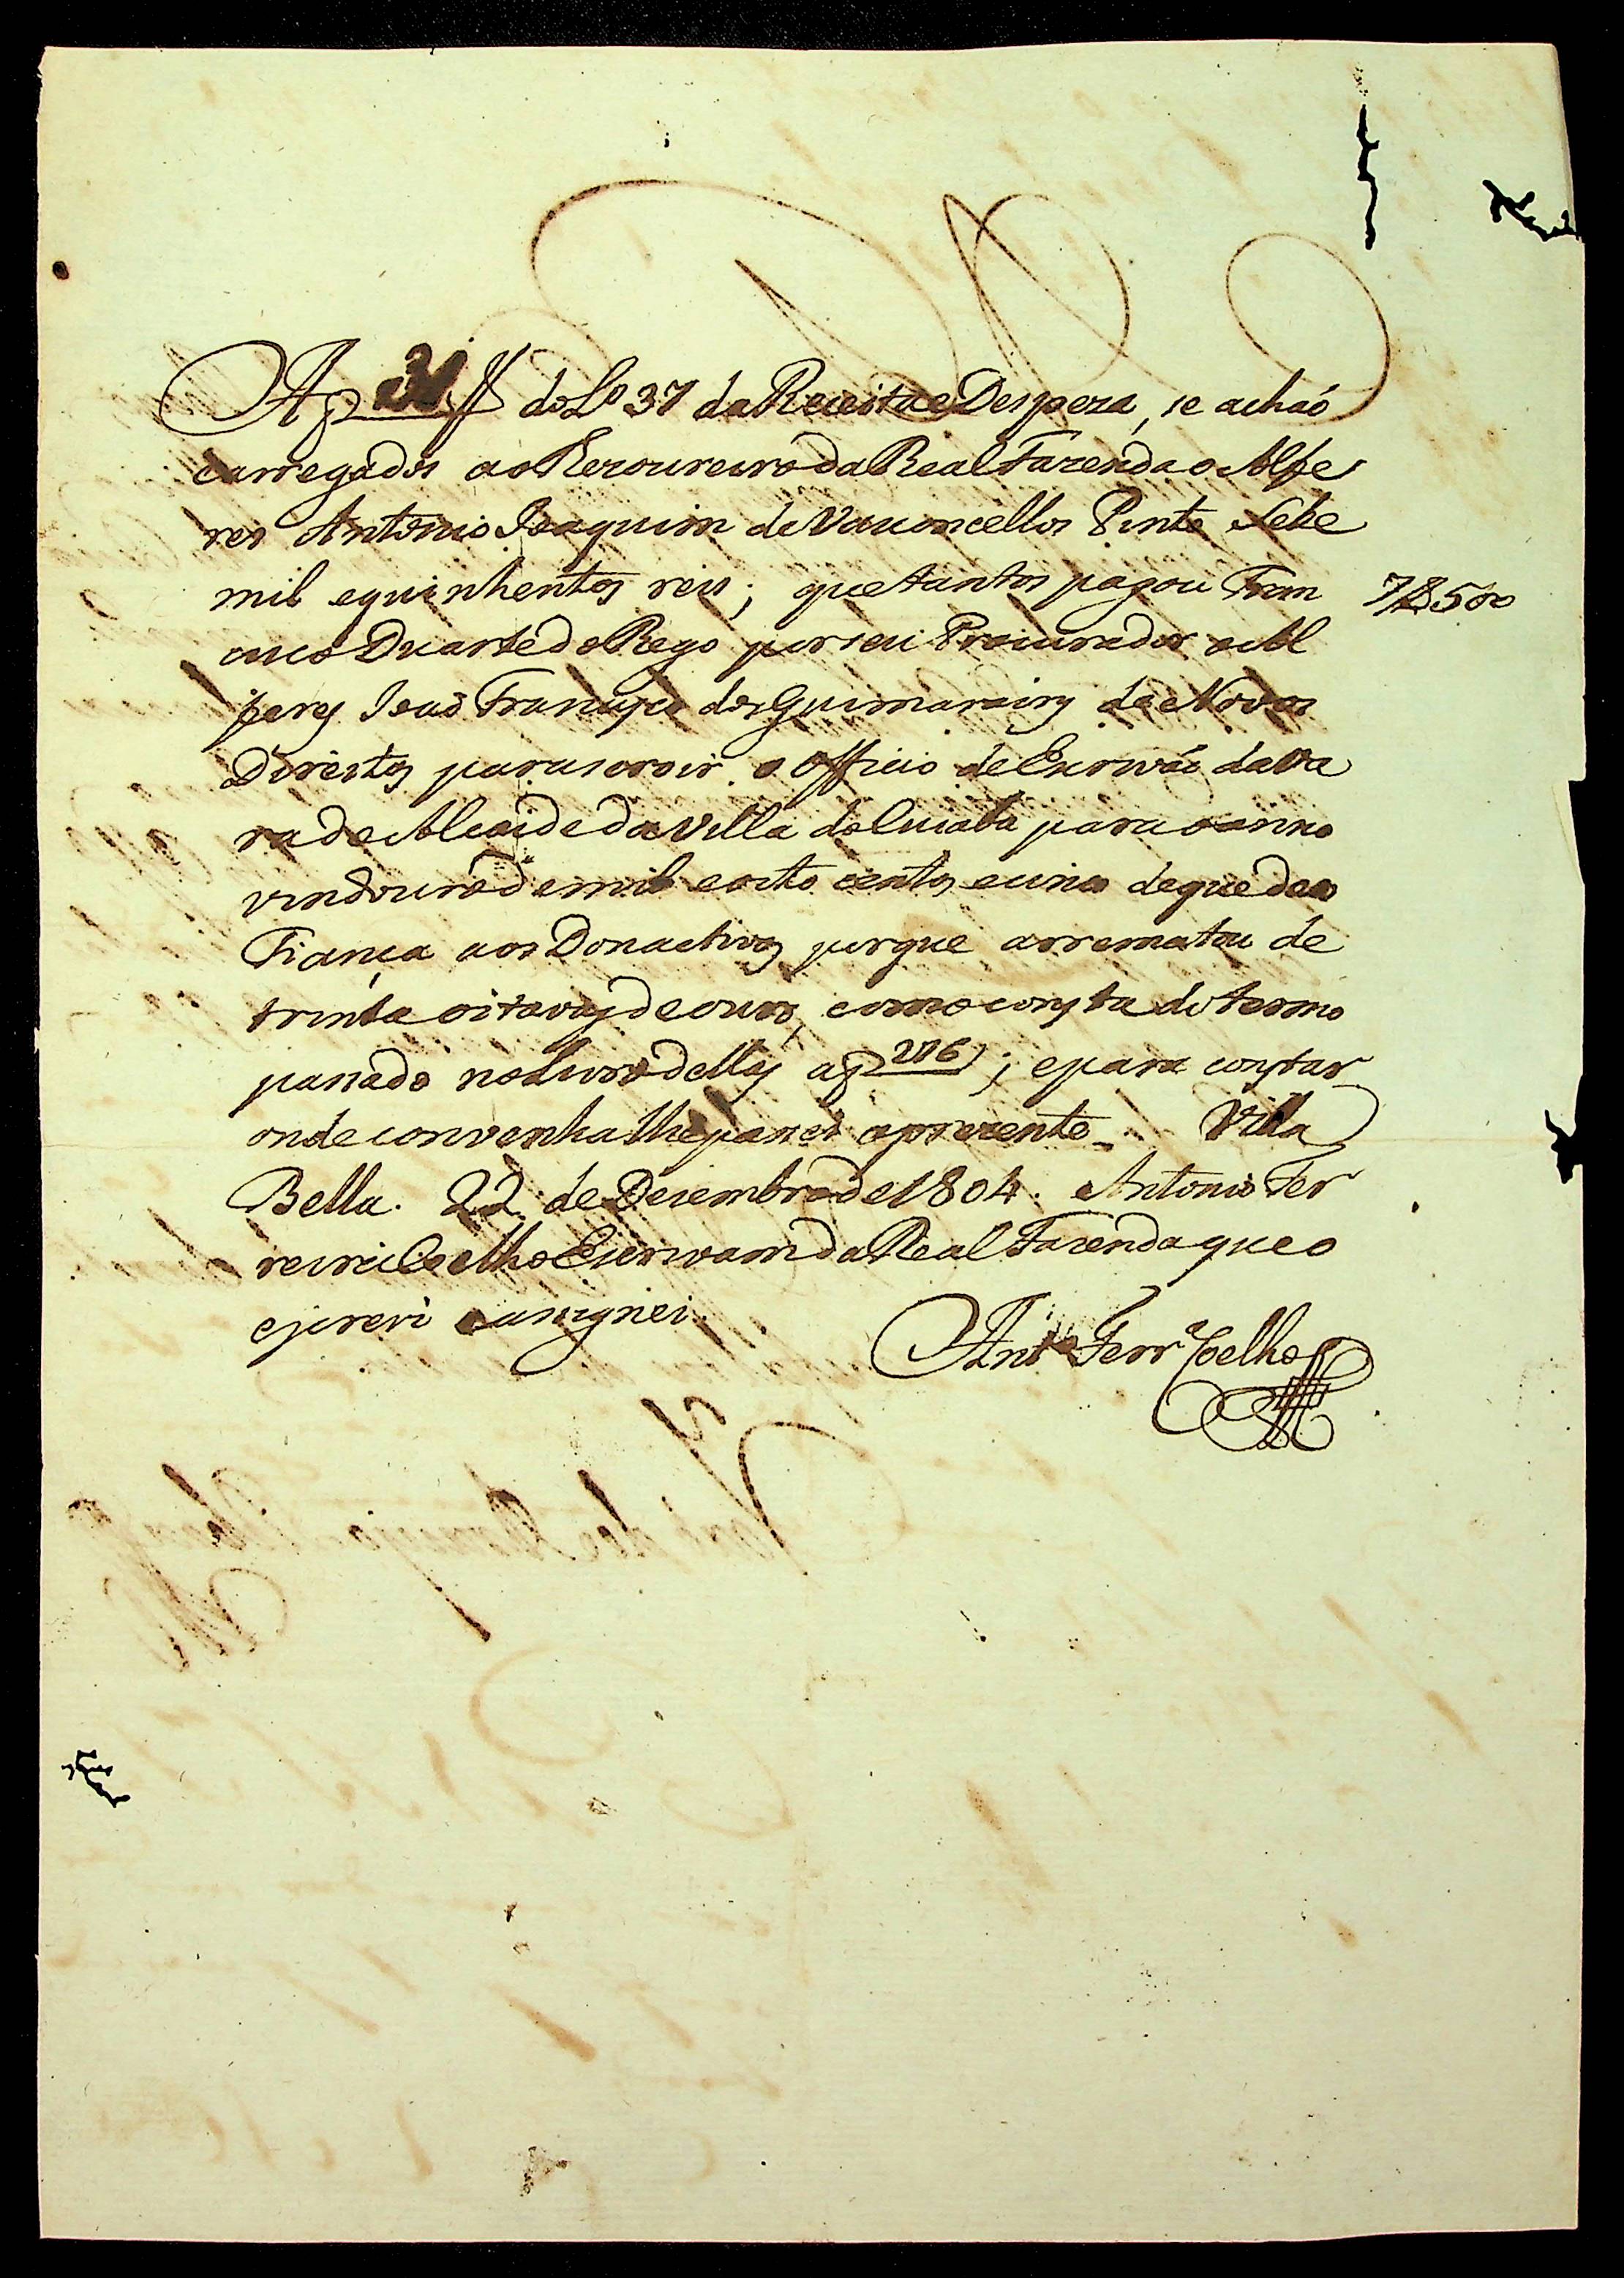 A f 31 V do Lº 37 da Receita e Despeza, se achaõ
carregados ao Thezoureiro da Real Fazenda o Alfe
res Antonio Joaquim de Vasconcellos Pinto Sete
mil e quinhentos reis; que tantos pagou Fran 7$500
cisco Duarte do Rego por seu Procurador o Al
feres Joaõ Francisco dos Guimarains de Novos
Direitos para servir o Officio de Escrivaõ da Va
ra de Alcaide da Villa do Cuiabá para o anno
vindouro de mil e oito centos e cinco de que deo
Fiança aos Donactivos porque arrematou de
trinta oitavas de ouro, como consta do termo
passado no Livro delles a f 206; e para constar
onde convenha lhe passei a prezente. Villa
Bella. 22 de Dezembro de 1804. Antonio Fer
reira Coelho Escrivam da Real Fazenda que o
escrevi e assignei.
Antº Ferrª Coelho